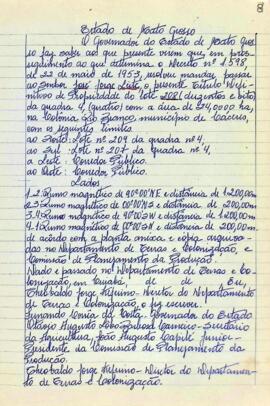 8
Estado de Mato Grosso
O Governador do Estado de Mato Gros-
so faz saber aos que presente virem que, em pros-
seguimento ao que determina o Decreto nº 1.598,
de 22 de maio de 1953, resolveu mandar passar
ao Senhor José Jorge Leite, o presente Título Defi-
nitivo de Propriedade do lote 208 (duzentos e oito)
da quadra 4, (quatro) com a área de 24,0000 ha,
na Colônia Rio Branco, município de Cáceres,
com os seguintes limites
ao Norte: Lote nº 209 da quadra nº 4.
ao Sul: Lote nº 207 da quadra nº 4.
a Leste: Corredor Público.
ao Oeste: Corredor Público.
Lados
1.2 Rumo magnético de 90º00'NE e distância de 1.200,00m
2.3 Rumo magnético de 00º00' e distância de 200,00m
3.4 Rumo magnético de 90º00'SW e distância de 1.200,00m
4.1 Rumo magnético de 00º00' e distância de 200,00m
de acôrdo com a planta anexa e cópia arquiva-
da no Departamento de Terras e Colonização, e
Comissão de Planejamento da Produção.
Dado e passado no Departamento de Terras e Co-
lonização, em Cuiabá, de de Eu,
Theobaldo Jorge Diretor do Departamento
de Terras e Colonização, o fiz escrever.
Fernando Corrêa da Costa - Governador do Estado
Otávio Augusto Secretário
da Agricultura, João Augusto Capilé Júnior -
Presidente da Comissão de Planejamento da
Produção.
Theobaldo Jorge Diretor do Departamen-
to de Terras e Colonização.